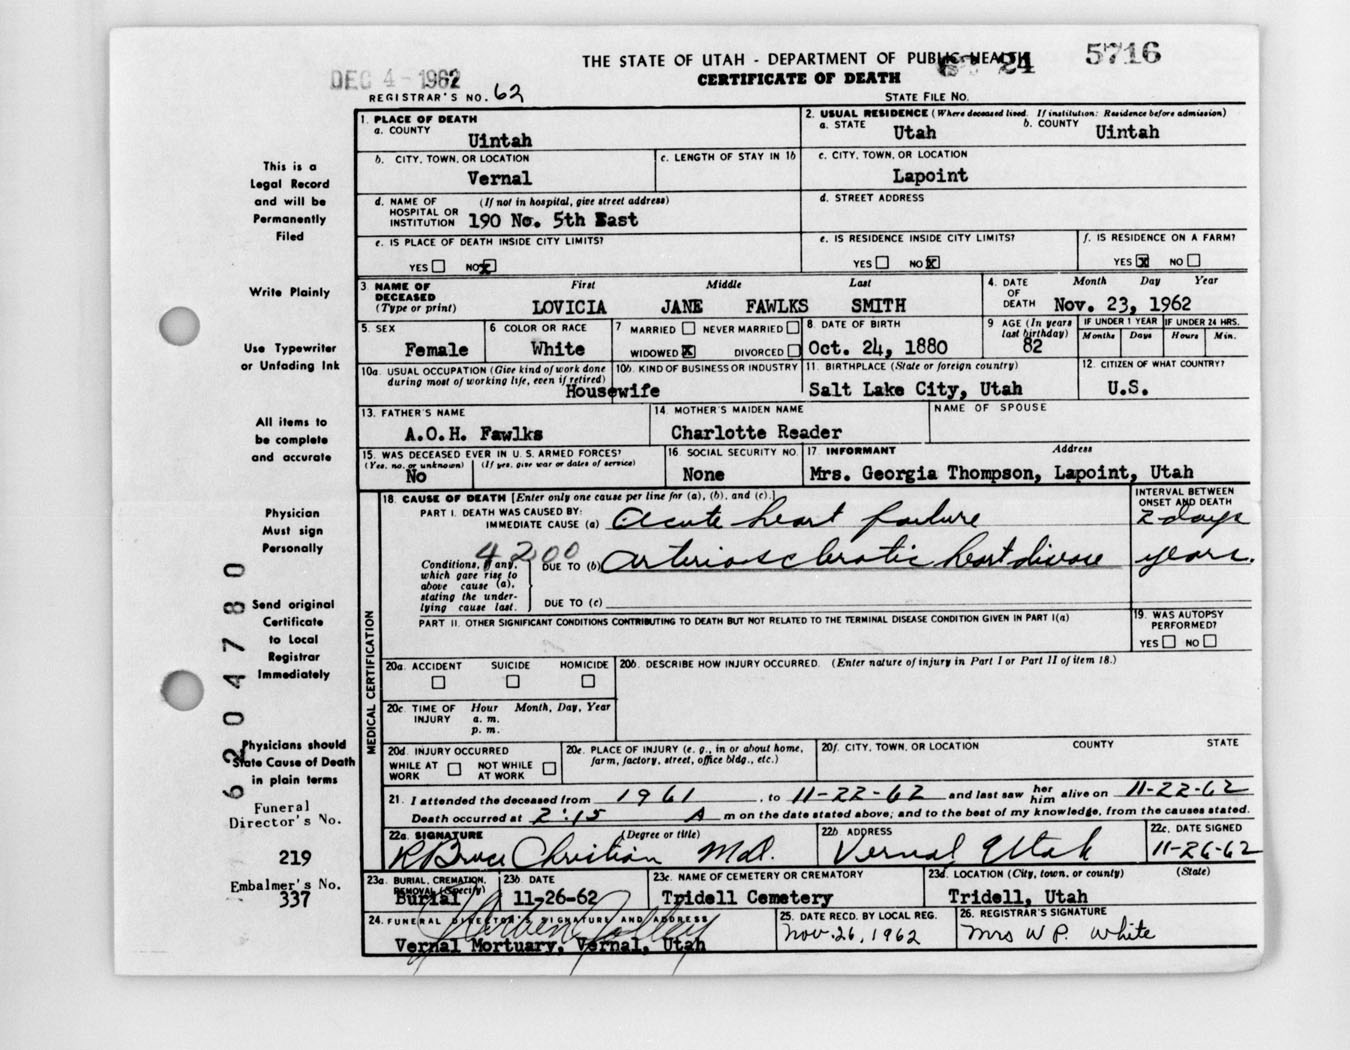 THE STATE OF UTAH - DEPARTMENT OF PUBLIC HEALTH
5716
24
DEC 4 - 1962
CERTIFICATE OF DEATH
REGISTRAR'S NO. 62
STATE FILE NO.
1. PLACE OF DEATH
a. COUNTY
Uintah
2. USUAL RESIDENCE (Where deceased lived. If institution: Residence before admission)
a. STATE Utah b. COUNTY Uintah
b. CITY, TOWN, OR LOCATION
Vernal
c. LENGTH OF STAY IN 1b
c. CITY, TOWN, OR LOCATION
Lapoint
d. NAME OF HOSPITAL OR INSTITUTION (If not in hospital, give street address)
190 No. 5th East
d. STREET ADDRESS
e. IS PLACE OF DEATH INSIDE CITY LIMITS?
YES NO X
e. IS RESIDENCE INSIDE CITY LIMITS?
YES NO X
f. IS RESIDENCE ON A FARM?
YES X NO
3. NAME OF DECEASED (Type or print)
First Middle Last
LOVICIA JANE FAWLKS SMITH
4. DATE OF DEATH
Month Day Year
Nov. 23, 1962
5. SEX
Female
6 COLOR OR RACE
White
7 MARRIED NEVER MARRIED
WIDOWED X DIVORCED
8. DATE OF BIRTH
Oct. 24, 1880
9 AGE (In years last birthday)
82
IF UNDER 1 YEAR
Months Days
IF UNDER 24 HRS.
Hours Min.
10a. USUAL OCCUPATION (Give kind of work done during most of working life, even if retired)
Housewife
10b. KIND OF BUSINESS OR INDUSTRY
11. BIRTHPLACE (State or foreign country)
Salt Lake City, Utah
12. CITIZEN OF WHAT COUNTRY?
U.S.
13. FATHER'S NAME
A.O.H. Fawlks
14. MOTHER'S MAIDEN NAME
Charlotte Reader
NAME OF SPOUSE
15. WAS DECEASED EVER IN U. S. ARMED FORCES?
(Yes, no, or unknown) (If yes, give war or dates of service)
No
16. SOCIAL SECURITY NO.
None
17. INFORMANT Address
Mrs. Georgia Thompson, Lapoint, Utah
18. CAUSE OF DEATH [Enter only one cause per line for (a), (b), and (c).]
INTERVAL BETWEEN ONSET AND DEATH
PART I. DEATH WAS CAUSED BY:
IMMEDIATE CAUSE (a) Acute heart failure
2 days
4200
Conditions, if any, which gave rise to above cause (a), stating the underlying cause last.
DUE TO (b) arteriosclerotic heart disease
years.
DUE TO (c)
PART II. OTHER SIGNIFICANT CONDITIONS CONTRIBUTING TO DEATH BUT NOT RELATED TO THE TERMINAL DISEASE CONDITION GIVEN IN PART I(a)
19. WAS AUTOPSY PERFORMED?
YES NO
MEDICAL CERTIFICATION
20a. ACCIDENT SUICIDE HOMICIDE
20b. DESCRIBE HOW INJURY OCCURRED. (Enter nature of injury in Part I or Part II of item 18.)
20c. TIME OF INJURY
Hour Month, Day, Year
a. m.
p. m.
20d. INJURY OCCURRED
WHILE AT WORK NOT WHILE AT WORK
20e. PLACE OF INJURY (e. g., in or about home, farm, factory, street, office bldg., etc.)
20f. CITY, TOWN, OR LOCATION COUNTY STATE
21. I attended the deceased from 1961, to 11-22-62 and last saw her him alive on 11-22-62
Death occurred at 2:15 A m on the date stated above; and to the best of my knowledge, from the causes stated.
22a. SIGNATURE (Degree or title)
R Bruce Christian M.D.
22b. ADDRESS
Vernal Utah
22c. DATE SIGNED
11-26-62
23a. BURIAL, CREMATION, REMOVAL (Specify)
Burial
23b. DATE
11-26-62
23c. NAME OF CEMETERY OR CREMATORY
Tridell Cemetery
23d. LOCATION (City, town, or county) (State)
Tridell, Utah
24. FUNERAL DIRECTOR'S SIGNATURE AND ADDRESS
Vernal Mortuary, Vernal, Utah
25. DATE RECD. BY LOCAL REG.
Nov. 26, 1962
26. REGISTRAR'S SIGNATURE
Mrs W P. White
This is a
Legal Record
and will be
Permanently
Filed
Write Plainly
Use Typewriter
or Unfading Ink
All items to
be complete
and accurate
Physician
Must sign
Personally
Send original
Certificate
to Local
Registrar
Immediately
Physicians should
State Cause of Death
in plain terms
Funeral
Director's No.
219
Embalmer's No.
337
6204780